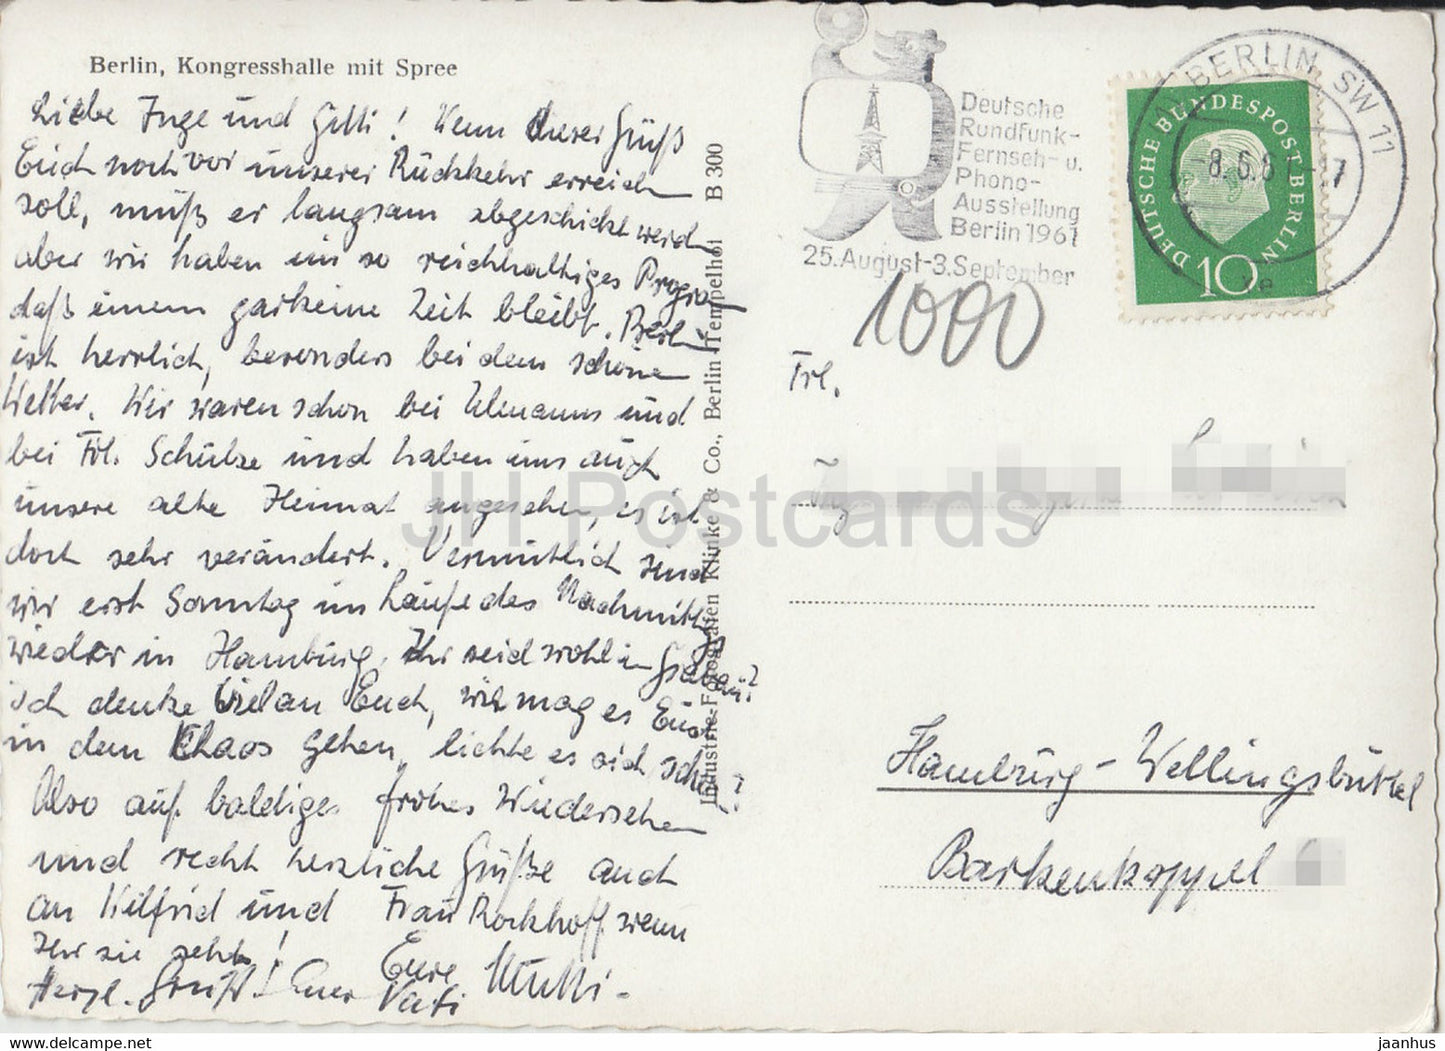 Berlin, Kongresshalle mit Spree
Liebe Inge und Gitti! Wenn dieser Gruß
Euch noch vor unserer Rückkehr erreichen
soll, muß er langsam abgeschickt werden
aber wir haben ein so reichhaltiges Program
daß einem garkeine Zeit bleibt. Berlin
ist herrlich, besonders bei dem schönen
Wetter. Wir waren schon bei Ulmanns und
bei Frl. Schulze und haben uns auch
unsere alte Heimat angesehen, es ist
dort sehr verändert. Vermutlich sind
wir erst Sonntag im Laufe des Nachmittags
wieder in Hamburg. Ihr seid wohl in
ich denke viel an Euch, wie mag es Euch
in dem Chaos gehen, lichte es sich schon?
Also auf baldiges frohes Wiedersehen
und recht herzliche Grüße auch
an Wilfrid und Frau Rockhoff wenn
Ihr sie seht!
Eure Mutti -
Herzl. Gruß! Euer Vati
Industrie-Fotografen Klinke & Co., Berlin-Tempelhof B 300
Deutsche
Rundfunk-
Fernseh- u.
Phono-
Ausstellung
Berlin 1961
25. August-3. September
BERLIN SW 11
-8.6.61-7
DEUTSCHE BUNDESPOST BERLIN
10
1000
Frl.
Hamburg-Wellingsbüttel
Barkenkoppel
JH Postcards
www.delcampe.net
jaanhus